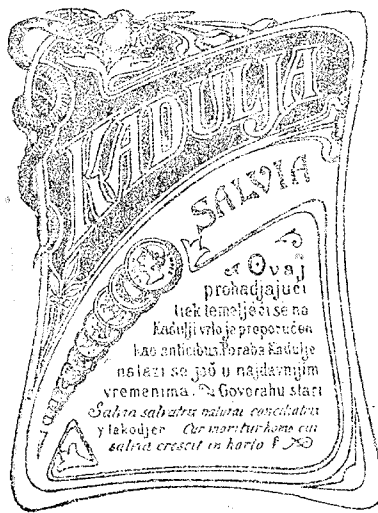 KADULJA
SALVIA
Ovaj
prohadjajući
liek temeljeći se na
Kadulji vrlo je preporučen
kao anticibus. Poraba Kadulje
nalazi se još u najdavnijim
vremenima. Govorahu stari
Salvia salvatrix naturae conciliatrix
y takodjer Cur moritur homo cui
salvia crescit in horto?